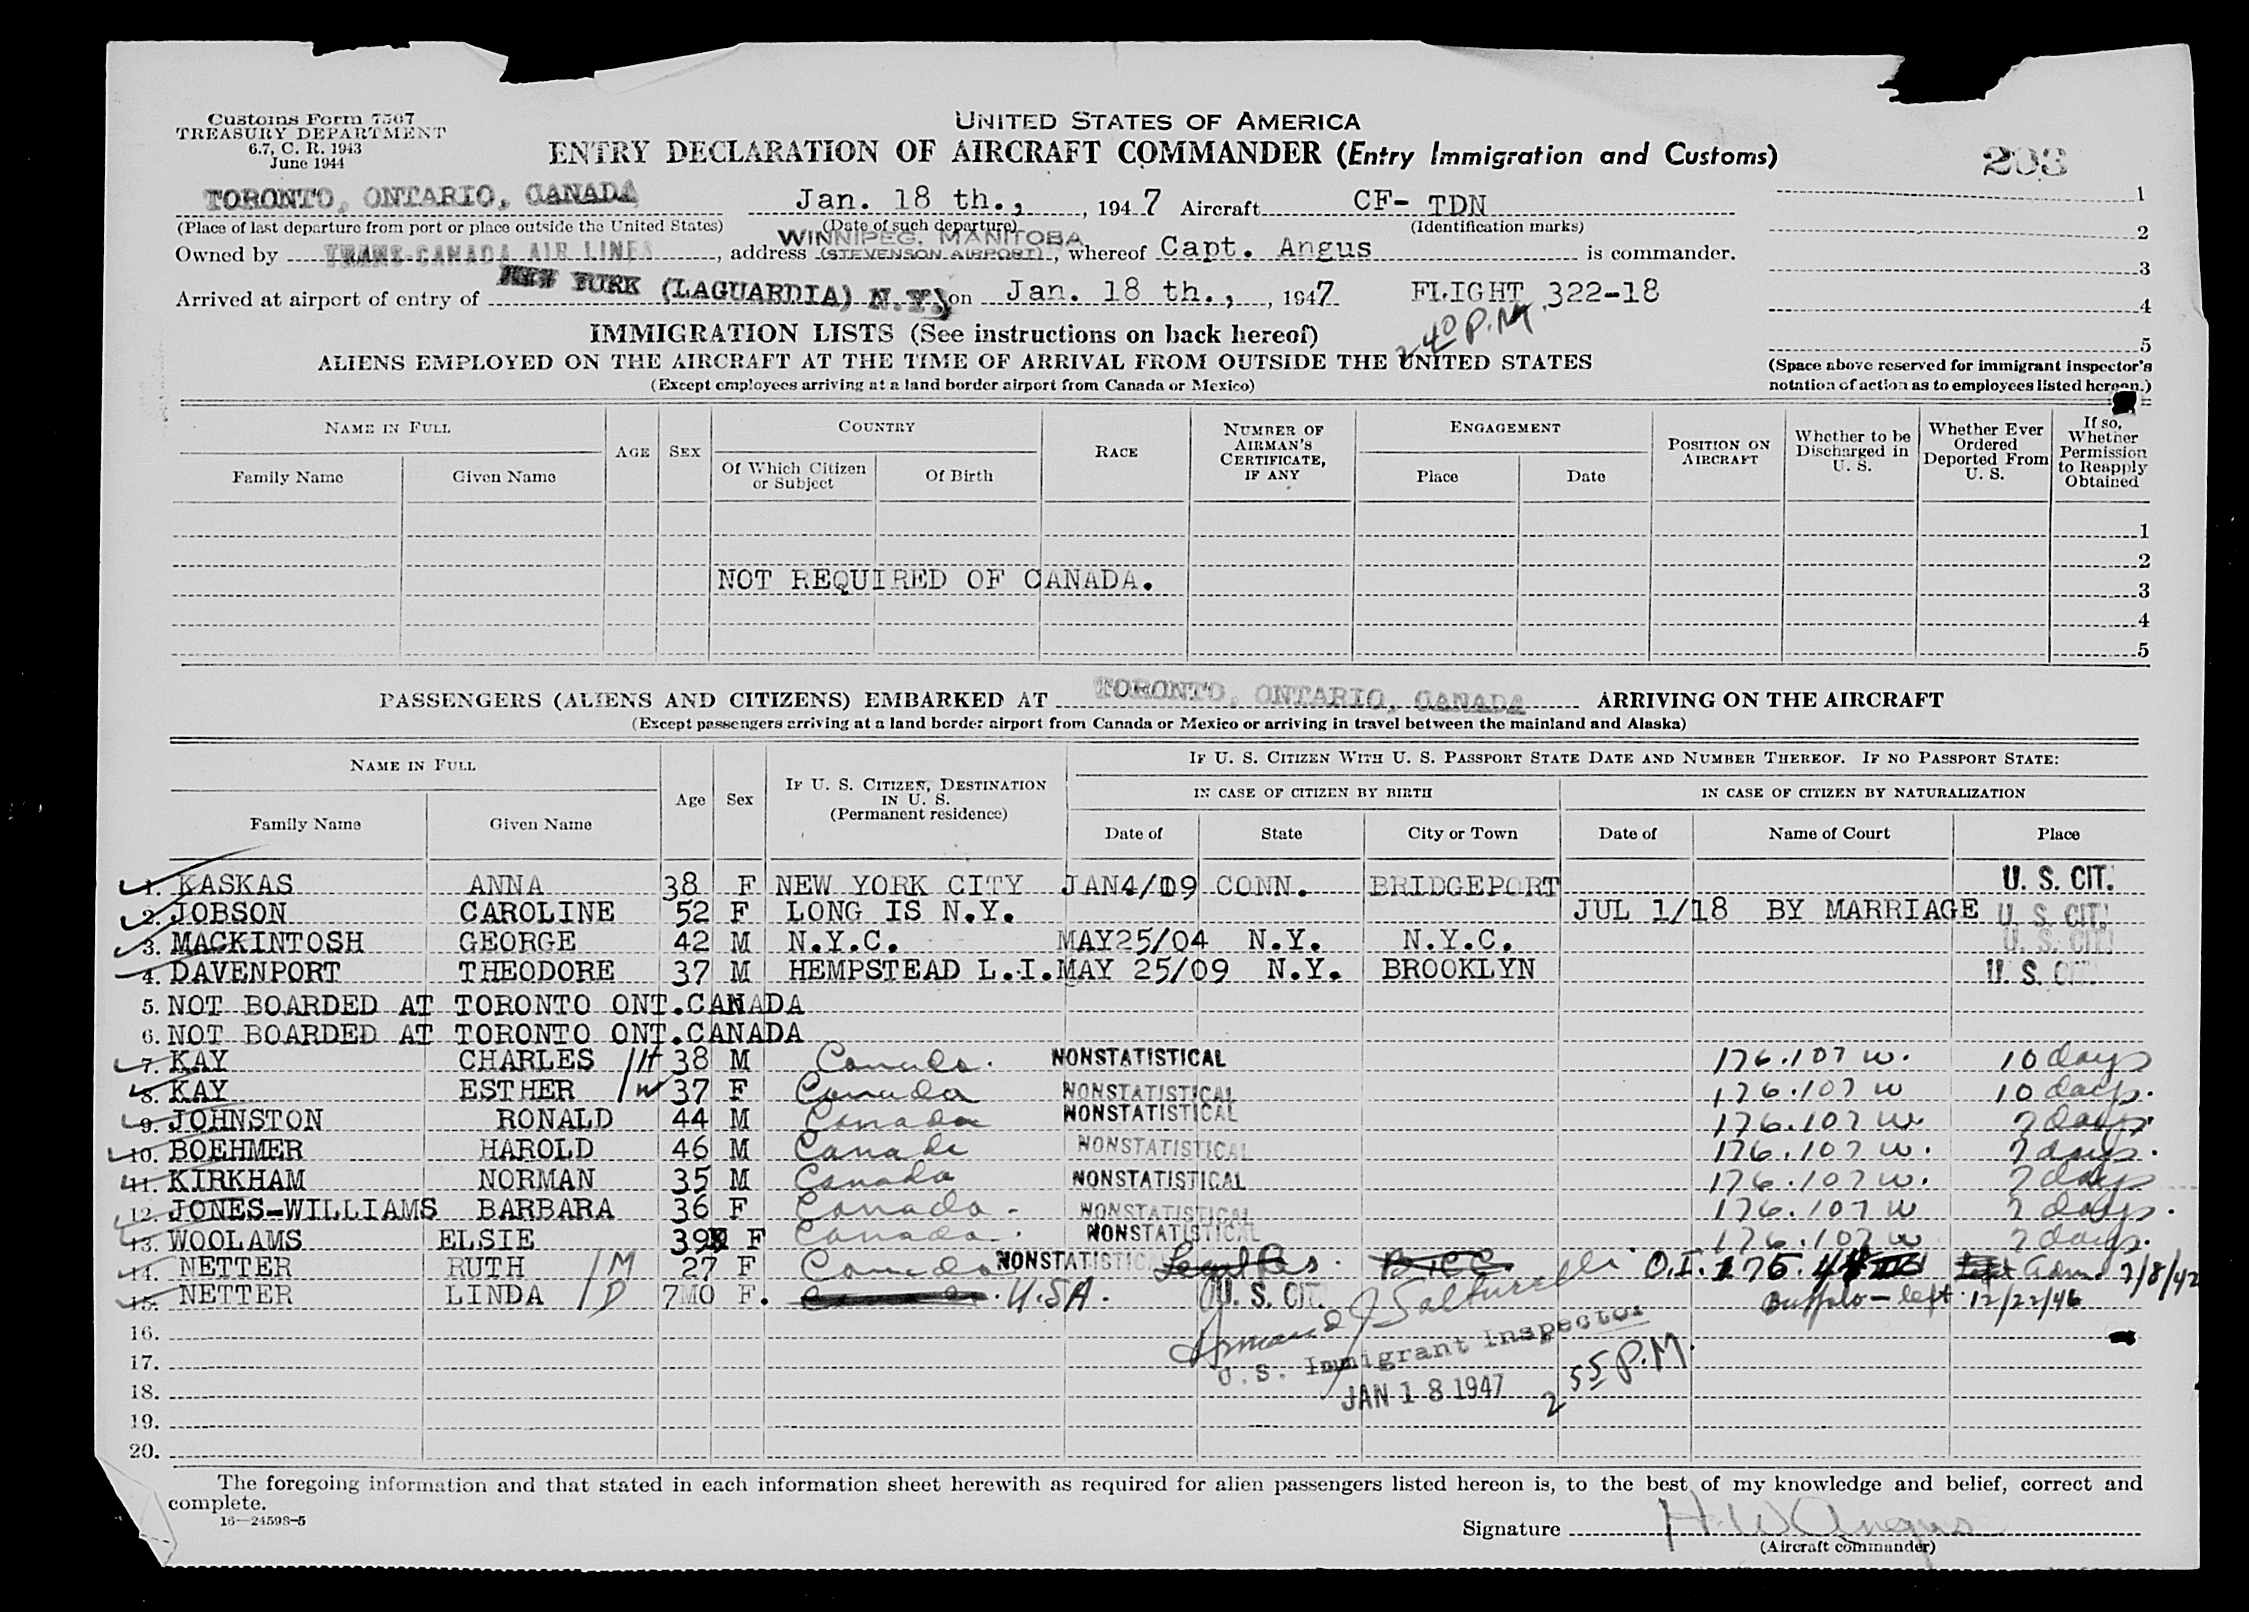 Customs Form 7507
TREASURY DEPARTMENT
6.7, C. R. 1943
June 1944
UNITED STATES OF AMERICA
ENTRY DECLARATION OF AIRCRAFT COMMANDER (Entry Immigration and Customs)
203
TORONTO, ONTARIO, CANADA Jan. 18 th., , 1947 Aircraft CF- TDN 1
(Place of last departure from port or place outside the United States) (Date of such departure) (Identification marks) 2
WINNIPEG, MANITOBA
Owned by TRANS-CANADA AIR LINES, address (STEVENSON AIRPORT), whereof Capt. Angus is commander. 3
Arrived at airport of entry of NEW YORK (LAGUARDIA) N.Y. on Jan. 18 th., , 1947 FLIGHT 322-18 4
2 40 P.M.
IMMIGRATION LISTS (See instructions on back hereof) 5
ALIENS EMPLOYED ON THE AIRCRAFT AT THE TIME OF ARRIVAL FROM OUTSIDE THE UNITED STATES
(Space above reserved for immigrant inspector's notation of action as to employees listed hereon.)
(Except employees arriving at a land border airport from Canada or Mexico)
NAME IN FULL AGE SEX COUNTRY RACE NUMBER OF AIRMAN'S CERTIFICATE, IF ANY ENGAGEMENT POSITION ON AIRCRAFT Whether to be Discharged in U. S. Whether Ever Ordered Deported From U. S. If so, Whether Permission to Reapply Obtained
Family Name Given Name Of Which Citizen or Subject Of Birth Place Date
1
2
NOT REQUIRED OF CANADA. 3
4
5
PASSENGERS (ALIENS AND CITIZENS) EMBARKED AT TORONTO, ONTARIO, CANADA ARRIVING ON THE AIRCRAFT
(Except passengers arriving at a land border airport from Canada or Mexico or arriving in travel between the mainland and Alaska)
NAME IN FULL Age Sex IF U. S. CITIZEN, DESTINATION IN U. S. (Permanent residence) IF U. S. CITIZEN WITH U. S. PASSPORT STATE DATE AND NUMBER THEREOF. IF NO PASSPORT STATE:
IN CASE OF CITIZEN BY BIRTH IN CASE OF CITIZEN BY NATURALIZATION
Family Name Given Name Date of State City or Town Date of Name of Court Place
1. KASKAS ANNA 38 F NEW YORK CITY JAN4/09 CONN. BRIDGEPORT U. S. CIT.
2. JOBSON CAROLINE 52 F LONG IS N.Y. JUL 1/18 BY MARRIAGE U. S. CIT.
3. MACKINTOSH GEORGE 42 M N.Y.C. MAY25/04 N.Y. N.Y.C. U. S. CIT.
4. DAVENPORT THEODORE 37 M HEMPSTEAD L.I. MAY 25/09 N.Y. BROOKLYN U. S. CIT.
5. NOT BOARDED AT TORONTO ONT.CANADA
6. NOT BOARDED AT TORONTO ONT.CANADA
7. KAY CHARLES /H 38 M Canada. NONSTATISTICAL 176.107 w. 10 days
8. KAY ESTHER /W 37 F Canada NONSTATISTICAL 176.107 w 10 days.
9. JOHNSTON RONALD 44 M Canada NONSTATISTICAL 176.107 w 7 days.
10. BOEHMER HAROLD 46 M Canada NONSTATISTICAL 176.107 w. 7 days.
11. KIRKHAM NORMAN 35 M Canada NONSTATISTICAL 176.107 w. 7 days
12. JONES-WILLIAMS BARBARA 36 F Canada - NONSTATISTICAL 176.107 w 7 days.
13. WOOLAMS ELSIE 39 F Canada. NONSTATISTICAL 176.107 w 7 days.
14. NETTER RUTH /M 27 F Canada NONSTATISTICAL Legal Res. O.I. 175. adm. 7/8/42
15. NETTER LINDA /D 7MO F. Canada. U.SA. U. S. CIT. Buffalo - left 12/22/46
16.
Armand J Salturelli
U. S. Immigrant Inspector
17.
2 55 P.M.
18.
JAN 18 1947
19.
20.
The foregoing information and that stated in each information sheet herewith as required for alien passengers listed hereon is, to the best of my knowledge and belief, correct and
complete.
16—24598-5
Signature H. W Angus
(Aircraft commander)